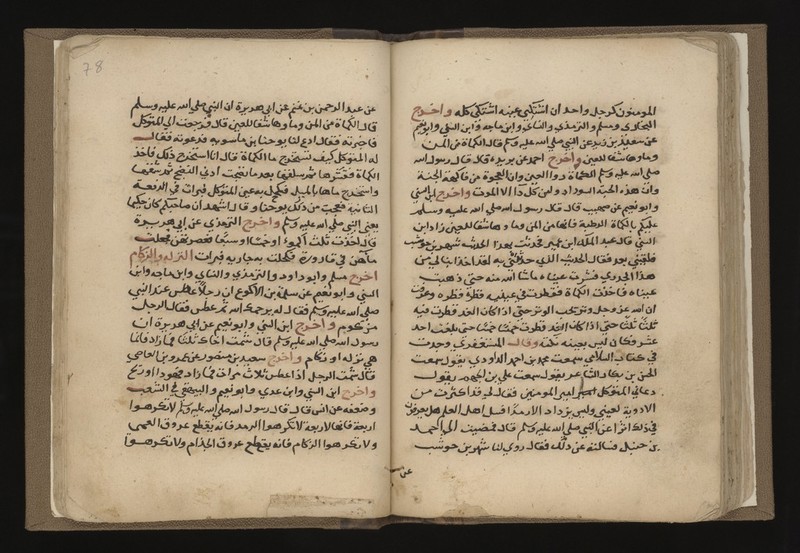 المومنون كرجل واحد ان اشتكى عينه اشتكى كله واخرج
البخاري ومسلم والترمذي والنساي وابن ماجه وابن السني وابو نعيم
عن سعيد بن زيد عن النبي صلى الله عليه وسلم قال الكماة من المن
وماوها شفا للعين واخرج احمد عن بريدة قال قال رسول الله
صلى الله عليه وسلم الكماة دوا العين وان العجوة من فاكهة الجنة
وان هذه الحبة السودا دوا من كل دا الا الموت واخرج ابن السني
وابو نعيم عن صهيب قال قال رسول الله صلى الله عليه وسلم
عليكم بالكماة الرطبة فانها من المن وماوها شفا للعين زاد ابن
السني قال عبد الملك بن عمير فحدثت بهذا الحديث شهر بن حوشب
فلقيني بعد فقال الحديث الذي حدثتني به لقد اخذ ابنا لي من
هذا الجدري فشرت عيناه ماشا الله منه حتى ذهبت
عيناه فاخذت الكماة فقطرت في عينيه قطرة قطرة وعرفت
ان الله عز وجل وتر يحب الوتر حتى اذا كان الغد قطرت فيه
ثلثا ثلثا حتى اذا كان الغد قطرت خمسا خمسا حتى بلغت احد
عشر فكان ليس بعينه وقال المستغفري وجدت
في كتاب السلامي سمعت محمد بن احمد الداودي يقول سمعت
الحق بن بكار الشاعر يقول سمعت علي بن الجهم يقول
دعاني المتوكل امير المومنين فقال لي قد اكثرت من
الادوية لعيني وليس يزداد الا رمدا فسل اهل العلم هل يعرفون
في ذلك اثرا عن النبي صلى الله عليه وسلم قال فمضيت الى احمد
بن حنبل فسالته عن ذلك فقال روى لنا شهر بن حوشب
عن
78
عن عبد الرحمن بن غنم عن ابي هريرة ان النبي صلى الله عليه وسلم
قال الكماة من المن وماوها شفا للعين قال فرجعت الى المتوكل
فاخبرته فقال ادع لنا يوحنا بن ماسويه فدعوته فقال
له المتوكل كيف تستخرج ما الكماة قال انا استخرج ذلك فاخذ
الكماة فقشرها ثم سلقها بعد ما نضجت ادنى النضج ثم شقها
واستخرج ماها بالميل فكحل به عين المتوكل فبرات في الدفعة
الثانية فعجب من ذلك يوحنا وقال اشهد ان صاحبكم كان حكيما
يعني النبي صلى الله عليه وسلم واخرج الترمذي عن ابي هريرة
قال اخذت ثلث اكمو او خمسا او سبعا فعصرتهن فجعلت
ماهن في قارورة فكحلت به جارية فبرات النزلة والزكام
اخرج مسلم وابو داود والترمذي والنساي وابن ماجه وابن
السني وابو نعيم عن سلمة بن الاكوع ان رجلا عطس عند النبي
صلى الله عليه وسلم فقال له يرحمك الله ثم عطس فقال الرجل
مزكوم واخرج ابن السني وابو نعيم عن ابي هريرة ان
رسول الله صلى الله عليه وسلم قال شمت اخاك ثلثا فما زاد فانما
هي نزلة او زكام واخرج سعيد بن منصور عن عمرو بن العاصي
قال شمت الرجل اذا عطس ثلاث مرات فما زاد فهو دا او ريح
واخرج ابن السني وابن عدي وابو نعيم والبيهقي في الشعب
وضعفه عن انس قال قال رسول الله صلى الله عليه وسلم لا تكرهوا
اربعة فانها لاربعة لا تكرهوا الرمد فانه يقطع عروق العمى
ولا تكرهوا الزكام فانه يقطع عروق الجذام ولا تكرهوا